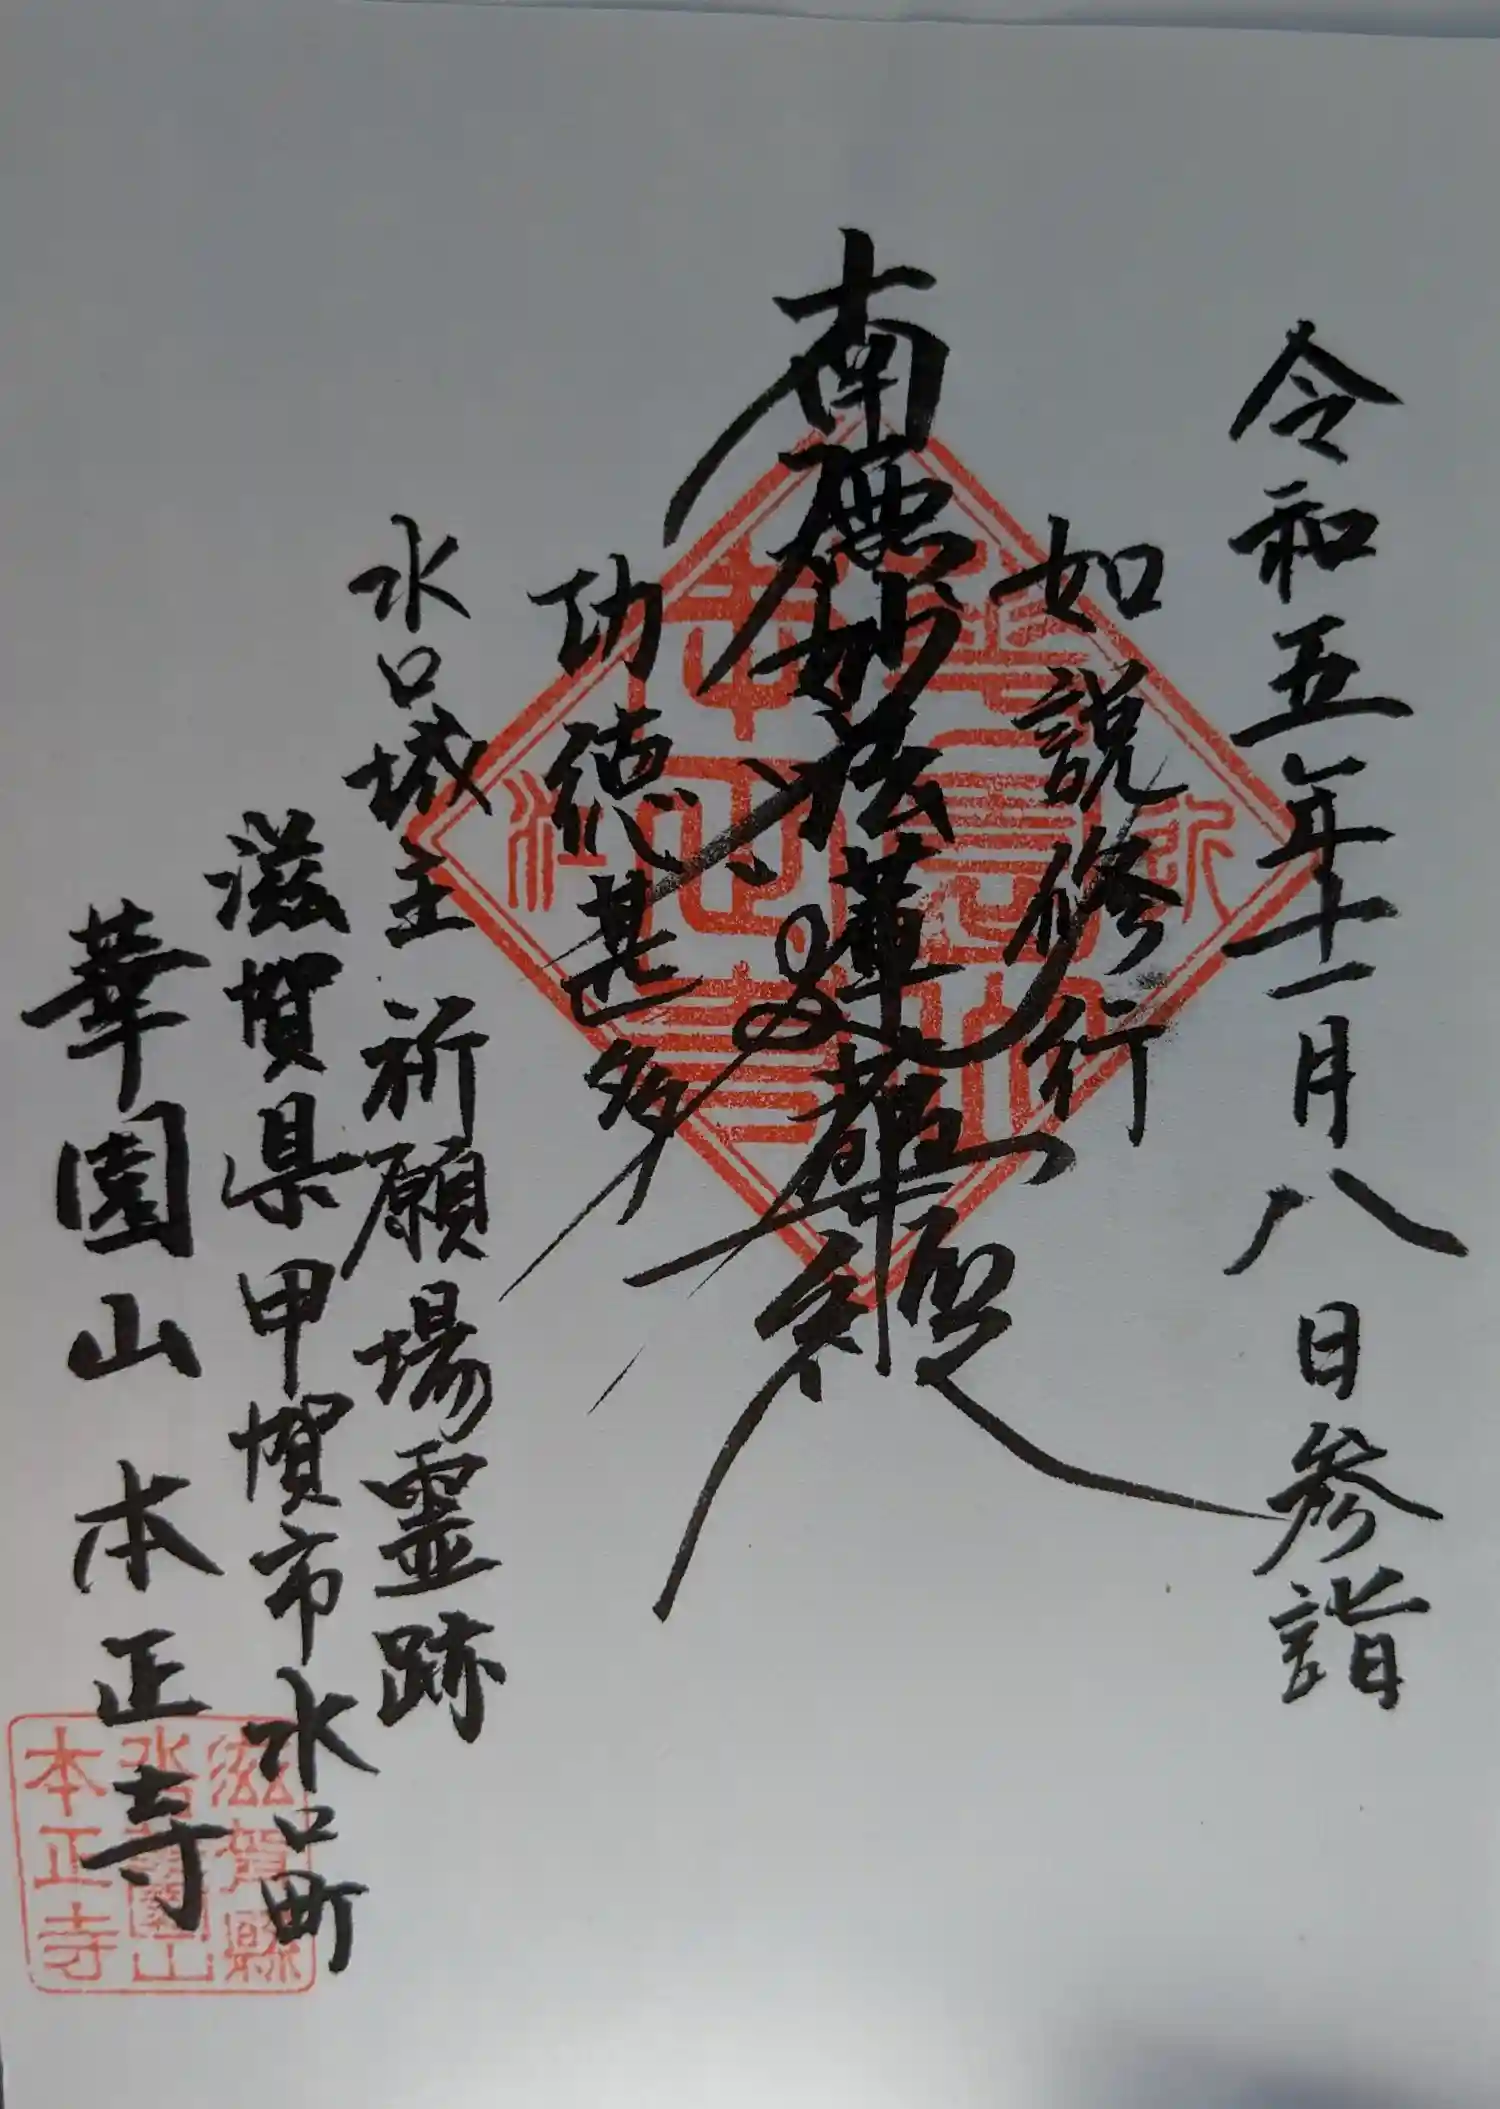 令和五年十一月八日参詣
如説修行
南無妙法蓮華経
功徳甚多
水口城主祈願場霊跡
滋賀県甲賀市水口町
華園山本正寺
滋賀縣
本正寺